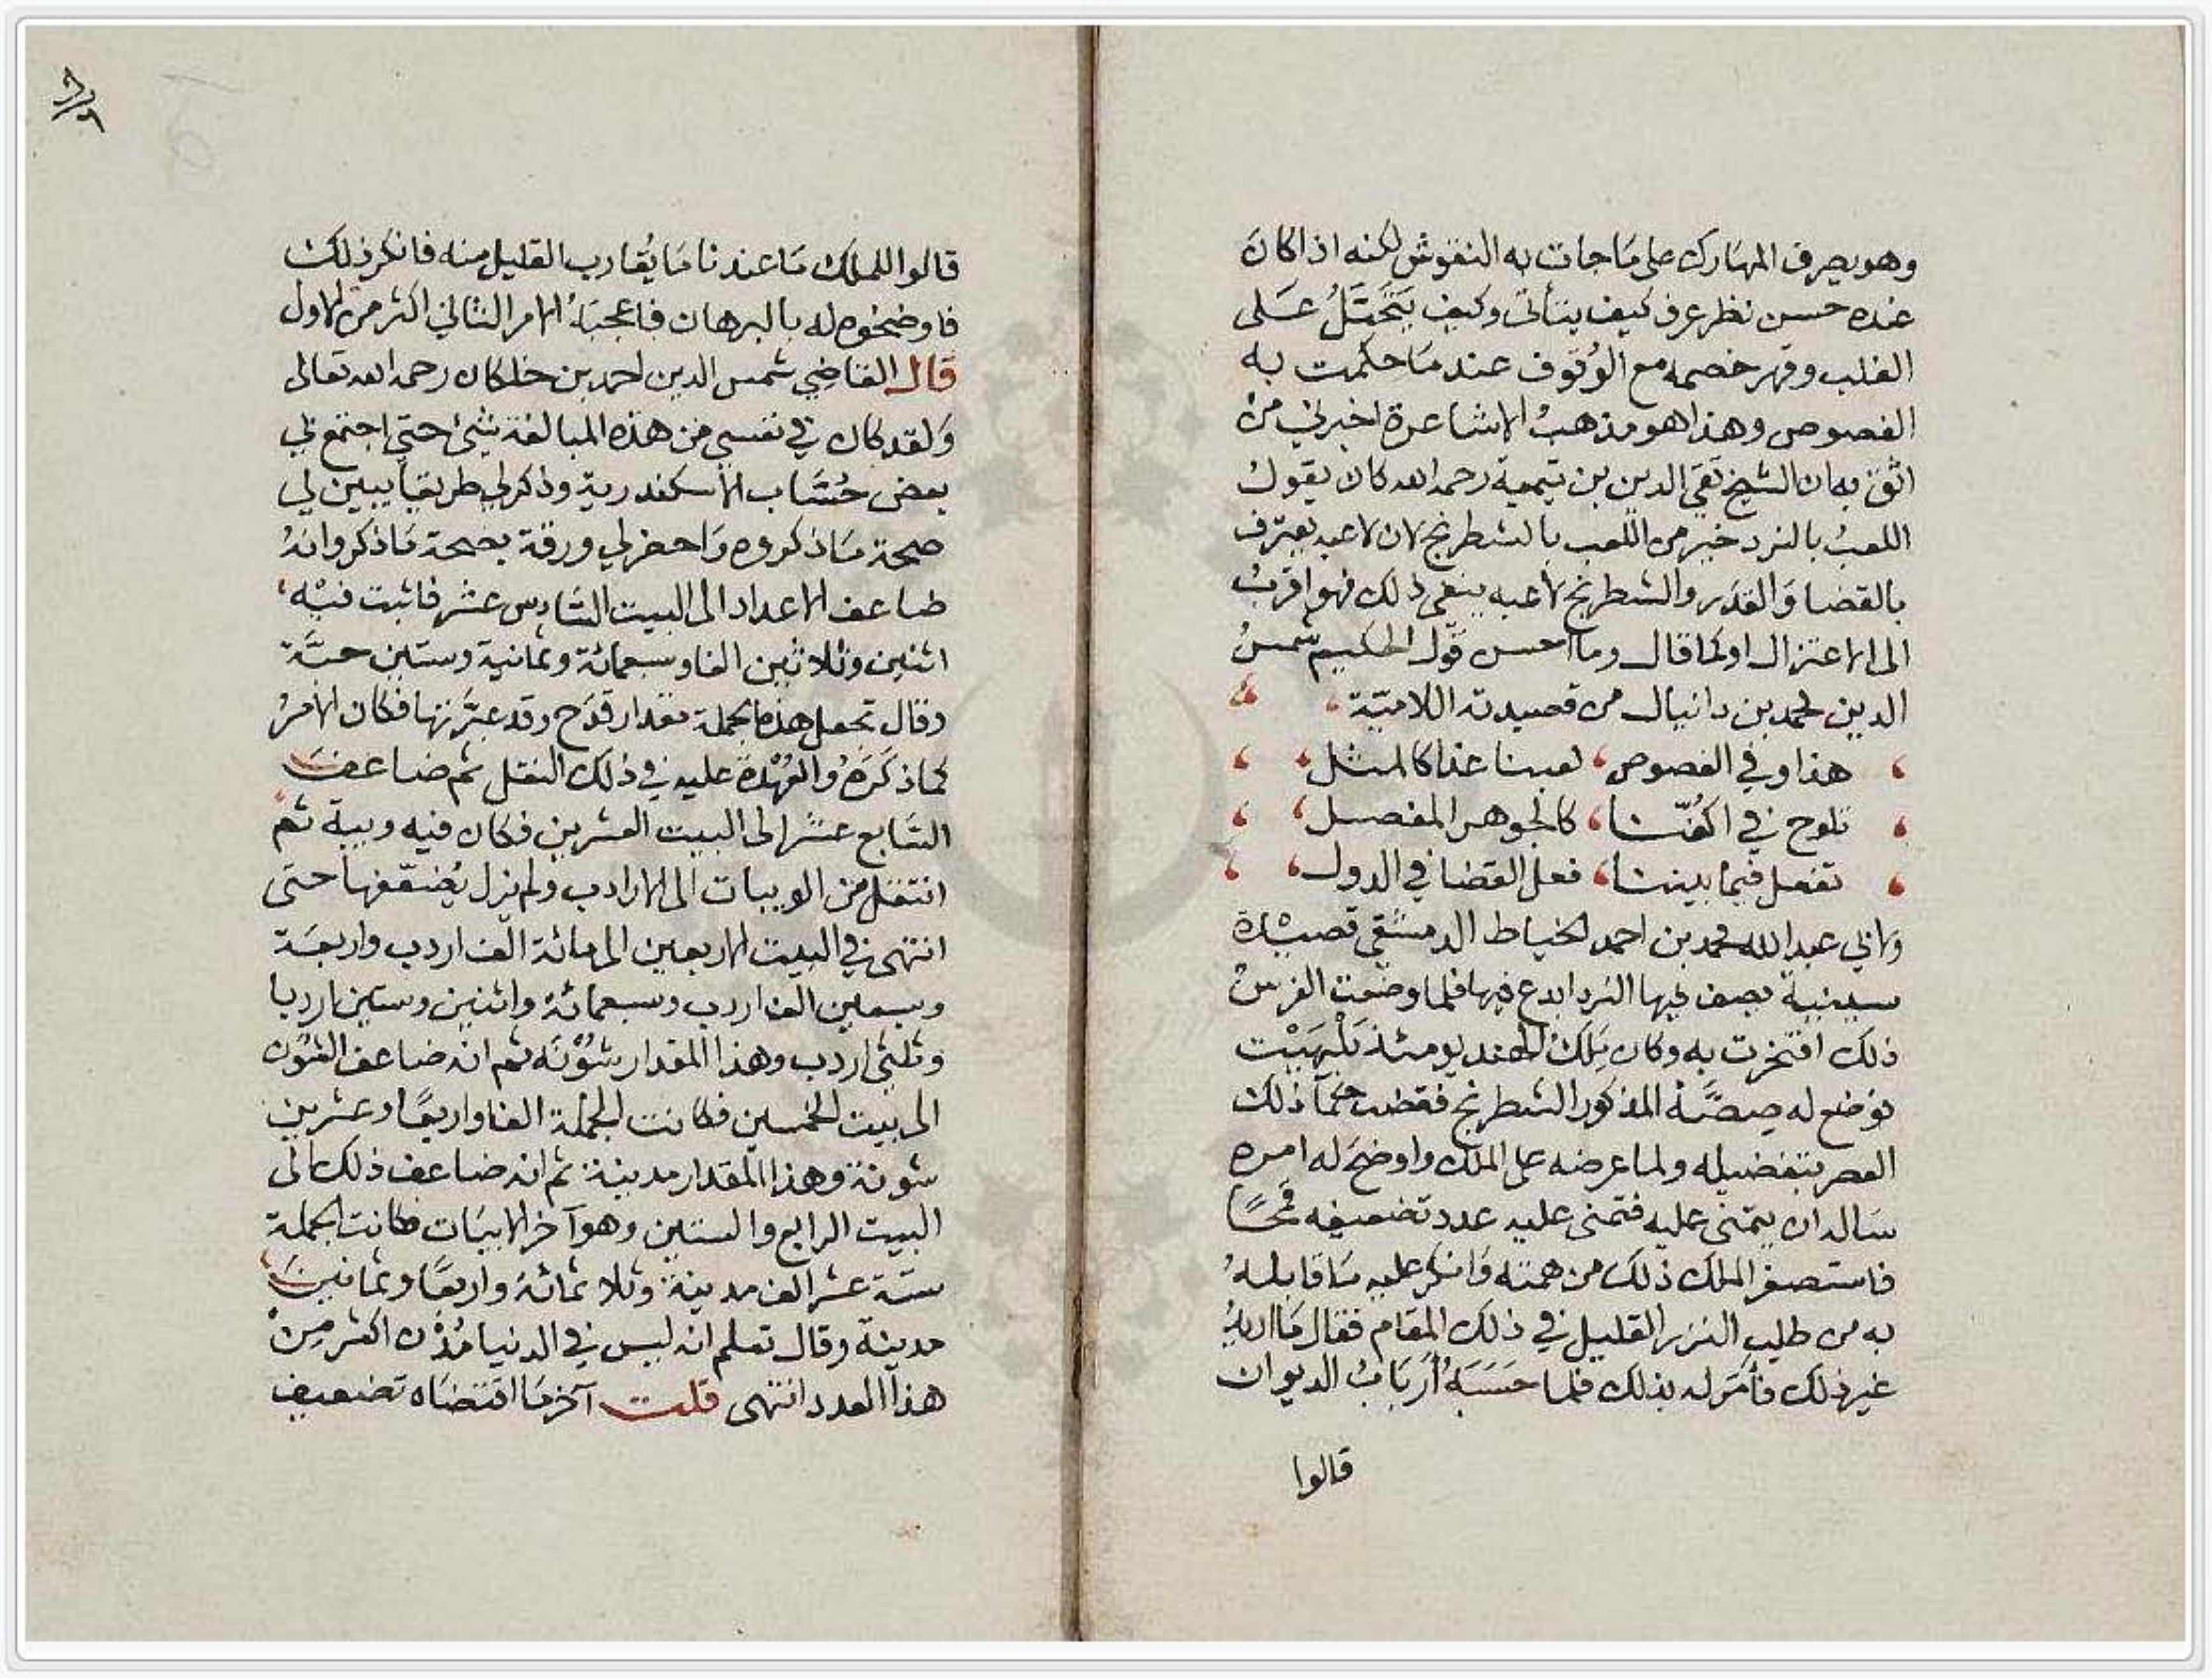 وهو يصرف المهارك على ما جات به النقوش لكنه اذا كان
عنده حسن نظر عرف كيف يتأتى وكيف يَتَحَيَّلُ عَلى
الغلب وقهر خصمه مع الوُقوف عند ما حكمت به
الفصوص وهذا هو مذهبُ الاشاعرة اخبرني من
اثق به ان الشيخ تقي الدين بن تيمية رحمه الله كان يقول
اللعبُ بالنرد خير من اللعب بالشطرنج لان لاعبه يعترف
بالقضا وَالقدَر والشطرنج لاعبه ينفي ذلك فهو اقربُ
الى الاعتزال او كما قال وما احسن قول الحكيم شمسُ
الدين محمد بن دانيال من قصيدته اللاميّة
هذا وفي الفصوص، لعبنا غدا كالمثل،
تلوح في اكفّنا، كالجوهر المفصل،
تفعل فيما بيننا، فعل القضا في الدول،
ولابي عبد الله محمد بن احمد الخياط الدمشقي قصيدة
سينيية يصف فيها النرد ابدع فيها فلما وضعت الفرس
ذلك افتخرت به وكان مَلكُ الهند يومئذ بَلْهَيْت
فوضع له صِصَّهْ المذكور الشطرنج فقضت حكمآ ذلك
العصر بتفضيله ولما عرضه على الملك واوضح له امره
سَاله ان يتمنى عليه فتمنى عليه عدد تضعيفه قمحًا
فاستصغر الملك ذلك من همته وَانكر عليه مَا قابلهُ
به من طلب النزر القليل في ذلك المقام فقال مَا اريدُ
غير ذلك فأمَر له بذلك فلما حسَبَهُ أربَابُ الديوان
قالوا
قالوا للملك مَا عندنا مَا يُقارب القليل منه فانكر ذلك
فاوضحوه له بالبرهان فاعجبَهُ الامر الثاني اكثر من الاول
قال القاضِي شمس الدين احمد بن خلكان رحمه الله تعالى
وَلقد كان في نفسي من هذه المبالغة شيئ حتى اجتمع لي
بعض حُسَّاب الاسكندرية وذكر لي طريقاً يبين لي
صحة مَا ذكروه وَاحضر لي ورقة بصحة مَا ذكر وانهُ
ضاعف الاعداد الى البيت السَّادس عشر فاثبت فيْه
اثنين وثلاثين الفا وسبعمائة وثمانية وستين حبَّة
وقال تجعل هذه الجملة مقدار قدَح وقد عبَّرتها فكان الامرُ
كما ذكَرَهُ والعُهْدة عليه في ذلك النقل ثم ضاعف
السَّابع عشر الى البيت العشرين فكان فيه ويبة ثم
انتقل من الويبات الى الارادب ولم يزل يُضعّفها حتى
انتهى في البيت الاربعين الى مائة الف اردب واربعَة
وسبعين الف اردب وسبعمائة واثنين وستين اردبا
وثلثي اردب وهذا المقدار شُوْنَه ثم انه ضاعف الشوَن
الى بيت الخمسين فكانت الجملة الفا واربعًا وعشرين
شونة وهذا المقدار مدينة ثم انه ضاعف ذلك الى
البيت الرابع والستين وهو آخر الابيَات فكانت الجملة
ستة عشر الف مدينة وثلاثمائة واربعًا وثمانين
مدينة وقال تعلم انه ليس في الدنيا مُدُن اكثر مِنْ
هذا العدد انتهى قلت آخر مَا اقتضَاه تضعيف